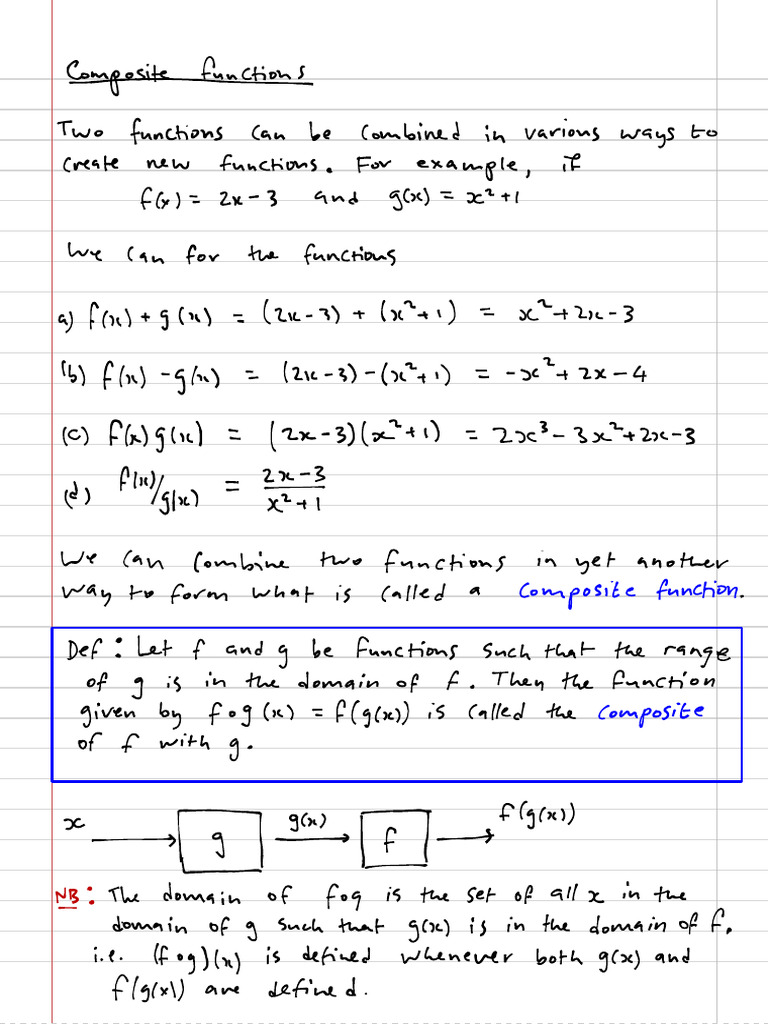 Composite functions
Two functions can be combined in various ways to
create new functions. For example, if
f(x) = 2x-3 and g(x) = x²+1
We can for the functions
a) f(x) + g(x) = (2x-3) + (x²+1) = x²+2x-3
(b) f(x) - g(x) = (2x-3) - (x²+1) = -x²+2x-4
(c) f(x)g(x) = (2x-3)(x²+1) = 2x³-3x²+2x-3
(d) f(x)/g(x) = (2x-3)/(x²+1)
We can combine two functions in yet another
way to form what is called a composite function.
Def: Let f and g be functions such that the range
of g is in the domain of f. Then the function
given by f∘g(x) = f(g(x)) is called the composite
of f with g.
x g g(x) f f(g(x))
NB: The domain of fog is the set of all x in the
domain of g such that g(x) is in the domain of f.
i.e. (f∘g)(x) is defined whenever both g(x) and
f(g(x)) are defined.